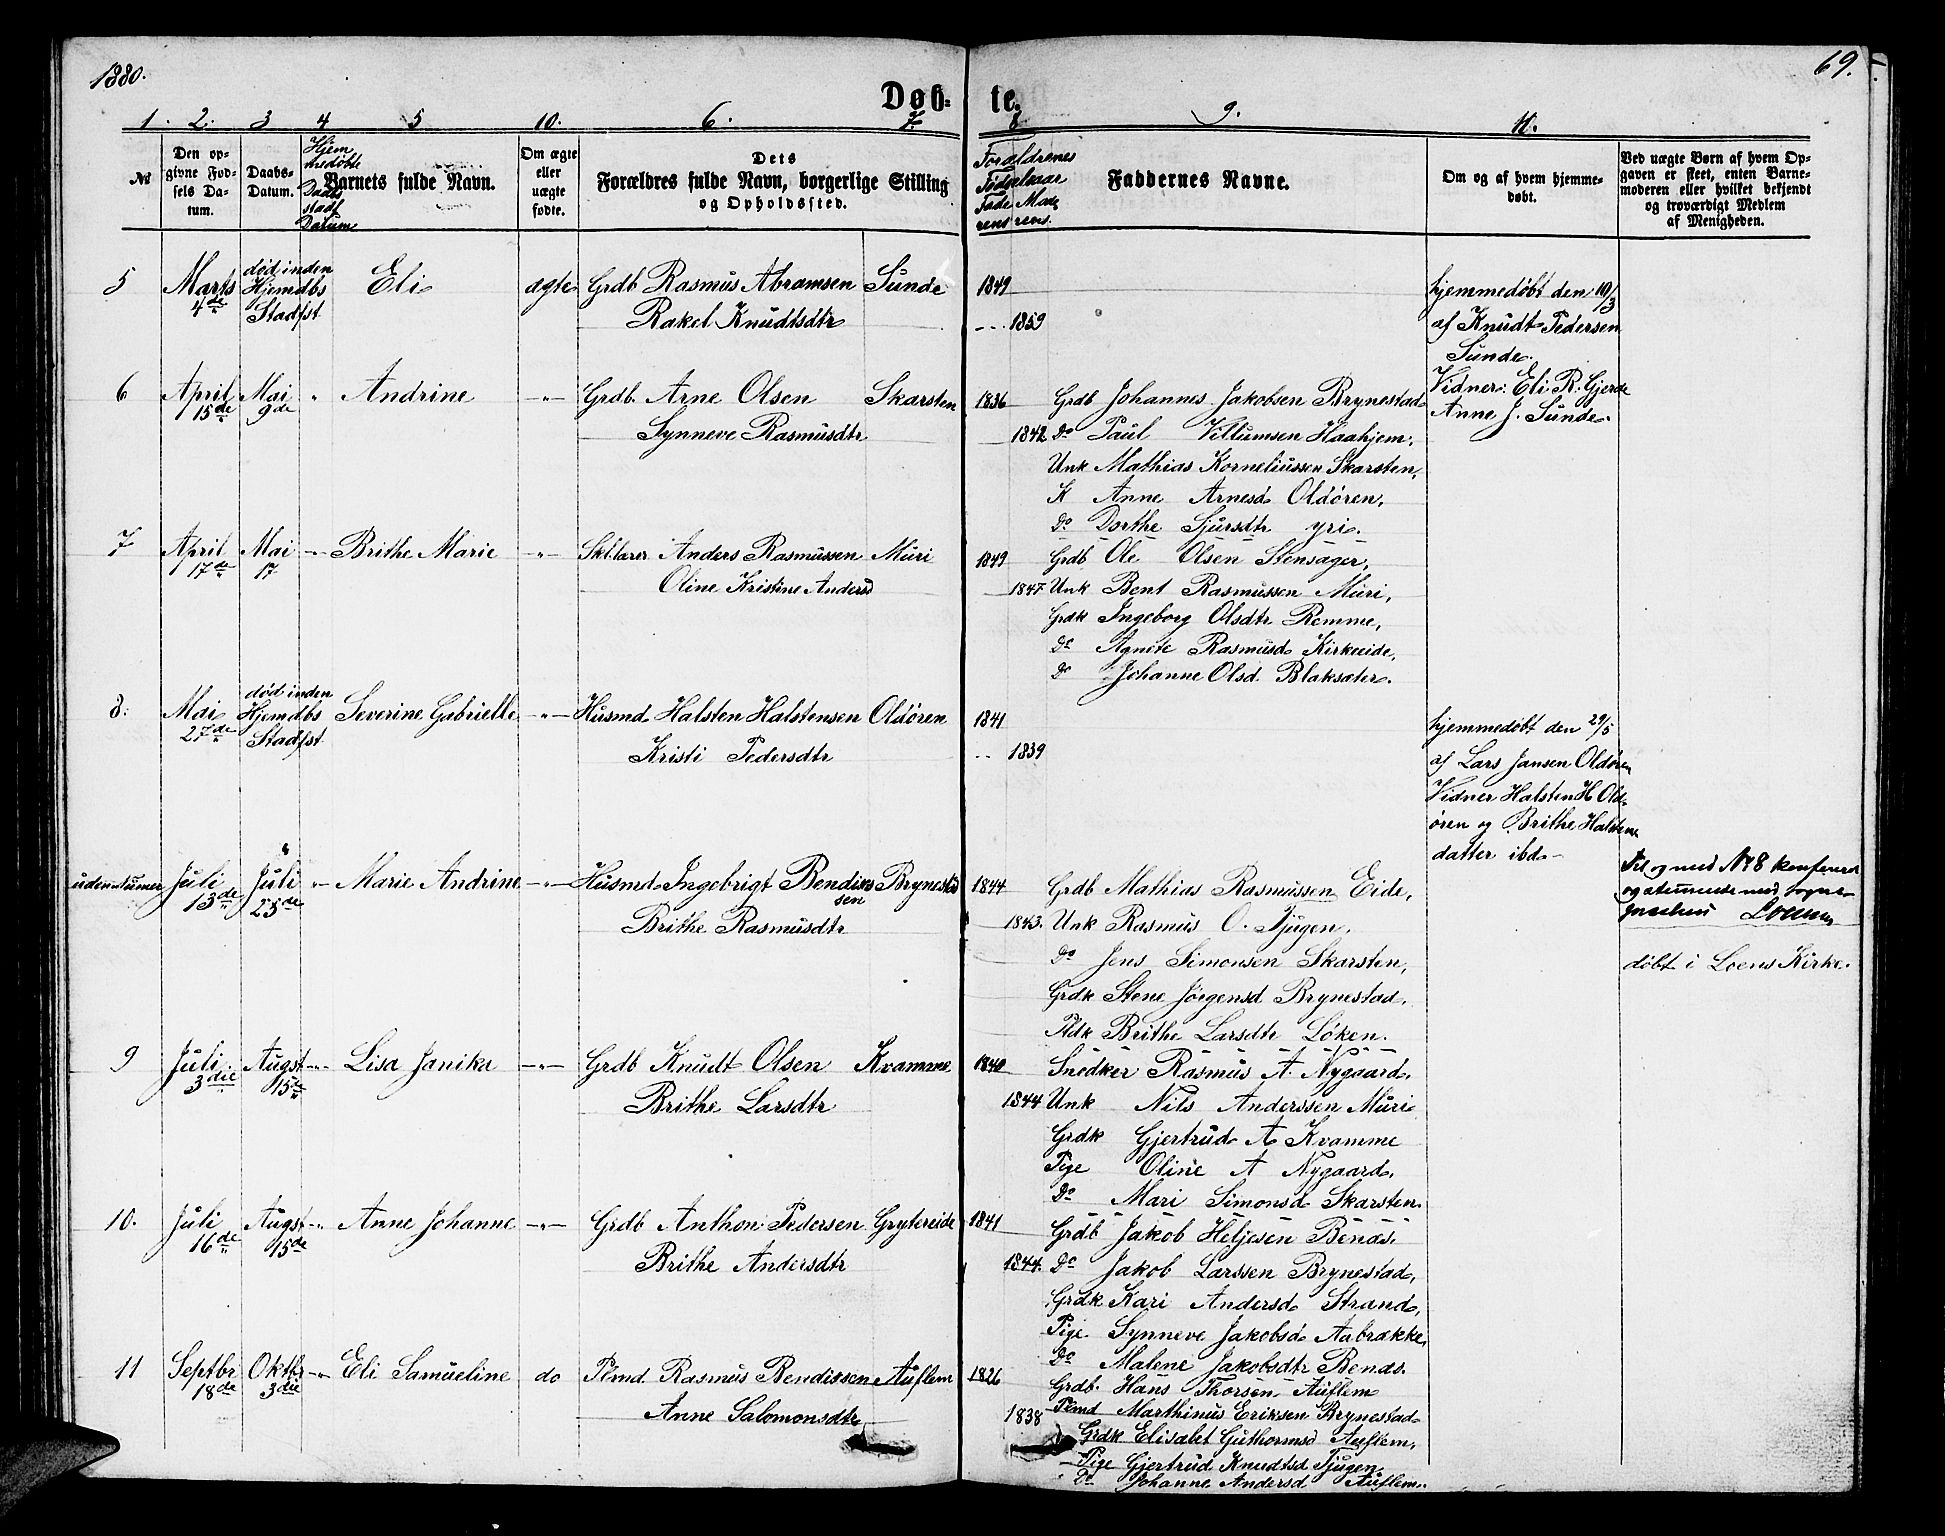 1880.
69.
Døb-te.
1. 2. 3 4 5 10. 6. 7. 8 9. 11.
№
Den opgivne Fødsels Datum.
Daabs-Datum.
Hjemmedøbte Daabs stadf. Datum
Barnets fulde Navn.
Om ægte eller uægte fødte.
Dets Forældres fulde Navn, borgerlige Stilling og Opholdssted.
Forældrenes Fødselsaar Faderens Moderens.
Faddernes Navne.
Om og af hvem hjemmedøbt.
Ved uægte Børn af hvem Opgaven er skeet, enten Barnemoderen eller hvilket bekjendt og troværdigt Medlem af Menigheden.
5 Marts 4de død inden Hjemdbs Stadfst Eli ægte Grdb Rasmus Abramsen Sunde 1849
Rakel Knudtsdtr --- 1859
hjemmedøbt den 10/3
af Knudt Pedersen
Sunde.
Vidner: Eli R. Gjerde
Anne J. Sunde.
6 April 15de Mai 9de " Andrine -"- Grdb. Arne Olsen Skarsten 1836 Grdb Johannes Jakobsen Brynestad
Synneve Rasmusdtr 1842 Do Paul Villumsen Haahjem,
Unk Mathias Korneliussen Skarsten,
K Anne Arnesd Oldøren,
Do Dorthe Sjursdtr Yri.
7 April 17de Mai 17 -"- Brithe Marie -"- Skllærer Anders Rasmussen Muri 1849 Grdb Ole Olsen Stensager,
Oline Kristine Andersd 1847 Unk Bent Rasmussen Muri,
Grdk Ingeborg Olsdtr Remme,
Do Agnete Rasmusd Kirkeeide,
Do Johanne Olsd. Blaksæter.
8. Mai 27de død inden Hjemdbs Stadfst. Severine Gabrielle -"- Husmd Halsten Halstensen Oldøren 1841
Kristi Pedersdtr -- 1839
hjemmedøbt den 29/5
af Lars Jansen Oldøren
Vidner Halsten H Oldøren og Brithe Halstensdatter ibd.
udennumer Juli 13de Juli 25de -"- Marie Andrine -"- Husmd Ingebrigt Bendixsen Brynestd 1844 Grdb Mathias Rasmussen Eide,
Brithe Rasmusdtr 1843. Unk Rasmus O. Tjugen.
Do Jens Simonsen Skarsten,
Grdk Stene Jørgensd Brynestad.
Pldk Brithe Larsdtr Løken.
Til og med N 8 konfereret
og stemmende med
døbt i Loens Kirke.
9 Juli 3die Augst 15de -"- Lisa Janika -"- Grdb Knudt Olsen Kvamme 1840 Snedker Rasmus A. Nygaard.
Brithe Larsdtr 1844 Unk Nils Anderssen Muri
Grdk Gjertrud A Kvamme
Pige Oline A Nygaard,
Do Mari Simonsd Skarsten.
10. Juli 16de Augst 15de -"- Anne Johanne -"- Grdb Anthon Pedersen Grytereide 1841 Grdb Jakob Heljesen Benæs.
Brithe Andersdtr 1844. Do Jakob Larssen Brynestad,
Grdk Kari Andersd Strand,
Pige Synneve Jakobsd Aabrække,
Do Malene Jakobsdtr Benæs.
11 Septbr 18de Oktbr 3die -"- Eli Samueline do Plmd Rasmus Bendixsen Auflem 1826 Grdb. Hans Thorsen Auflem
Anne Salomonsdtr 1838 Plmd Marthinus Eriksen Brynestad
Grdk Elisabet Guthormsd Auflem,
Pige Gjertrud Knudtsd Tjugen
Do Johanne Andersd Auflem.